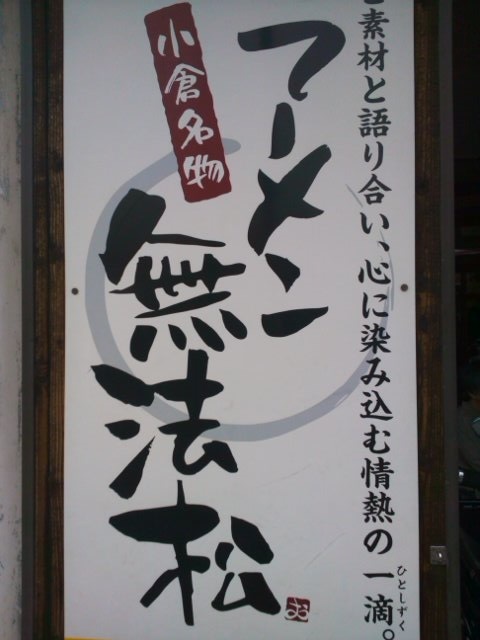 素材と語り合い、心に染み込む情熱の一滴。
ひとしずく
ラーメン
小倉名物
無法松